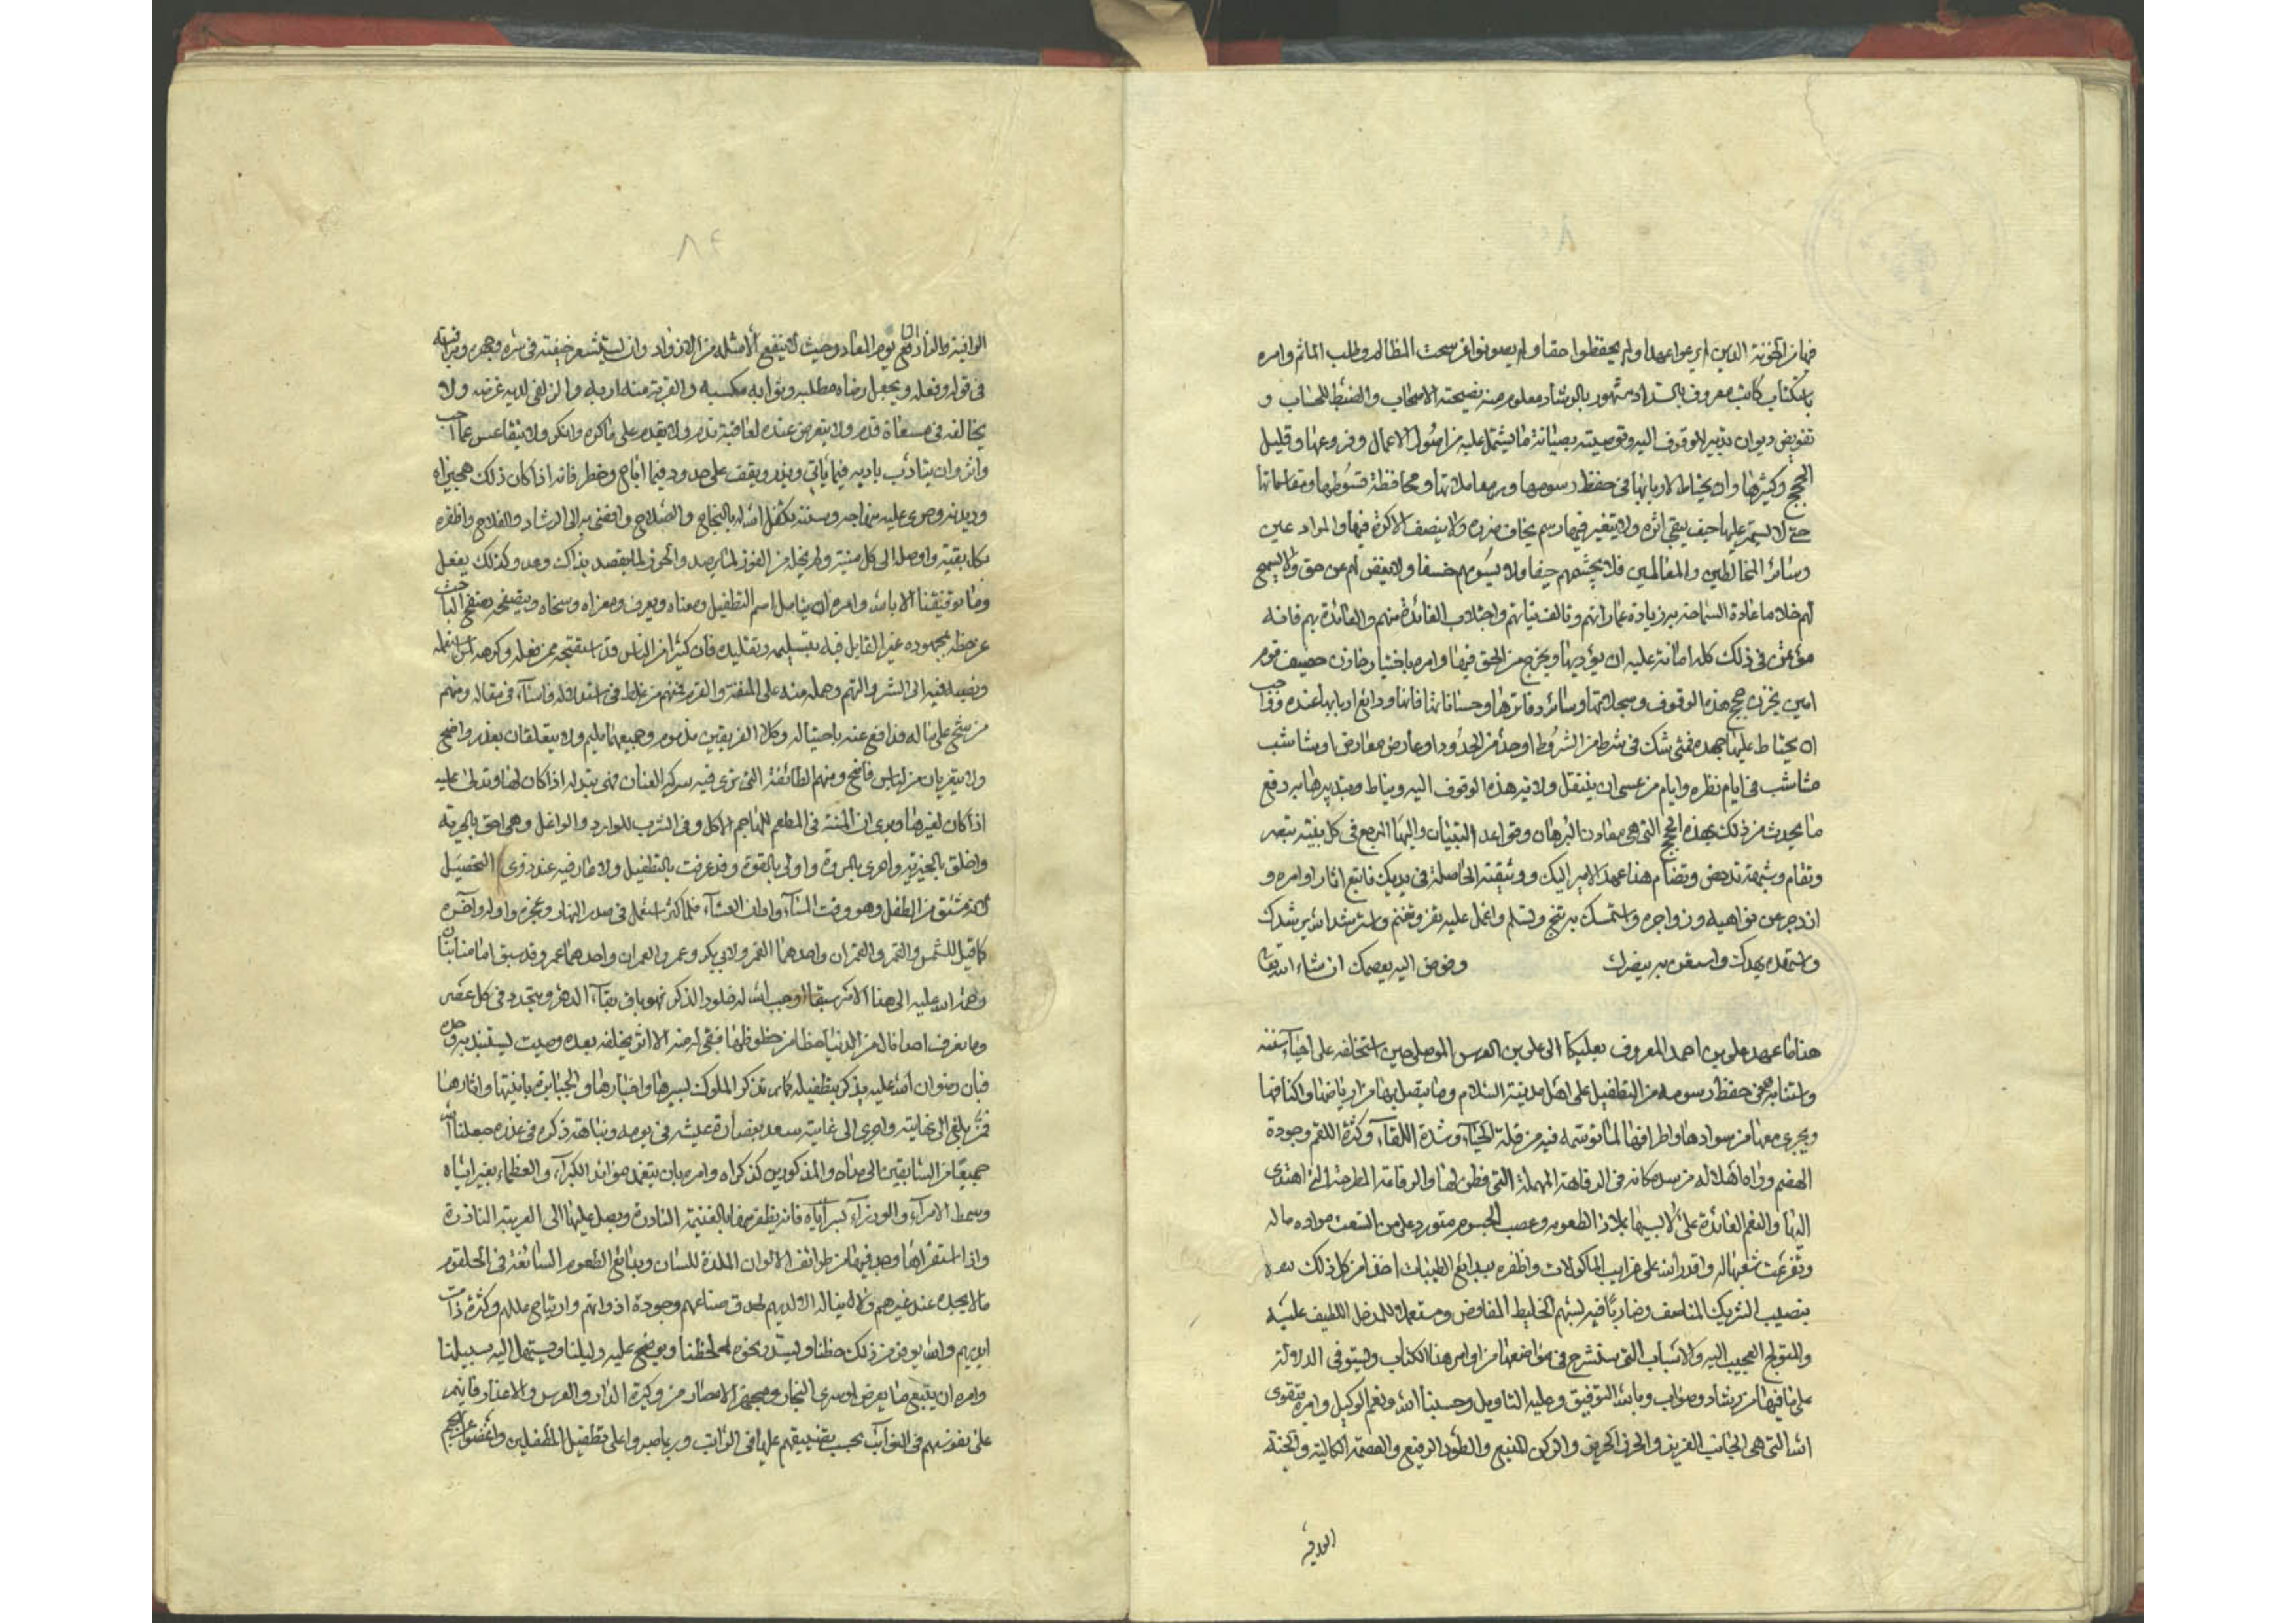 فيها من الخونة الذين لم يرعوا عهدا ولم يحفظوا حقا ولم يصونوا عن سحت المظالم وطلب المآثم وامره
باستكتاب كاتب معروف بالسداد مشهور بالرشاد معلوم منه نصيحته الاصحاب والضبط للحساب و
تفويض ديوان تدبير الوقوف اليه وتوصيته بصيانة ما يشتمل عليه من اصول الاعمال وفروعها وقليل
الحجج وكثيرها وان يحتاط لاربابها في حفظ رسومها ومعاملاتها ومحافظة قسوطها ومقاسماتها
حتى لا يستمر عليها حيف يبقى اثره ولا يتغير فيها رسم يخاف ضرره ولا ينصف الاكرة فيها والمزارعين
وسائر المخالطين والمعاملين فلا يجشمهم حيفا ولا يسومهم خسفا ولا يغضي لهم عن حق ولا يسمح
لهم خلا ما عادة السماحة بزيادة عماراتهم وتالف نياتهم واجتلاب الفائدة منهم والعائدة بهم فانه
مؤتمن في ذلك كله امانة عليه ان يؤديها ويخرج من الحق فيها وامره باختيار خازن حصيف قوم
امين يخزن حجج هذه الوقوف وسجلاتها وسائر دفاترها وحسباناتها فانها ودائع اربابها عنده وواجب
ان يحتاط عليها جهده فمتى شك في شرط من الشروط او حد من الحدود او عارض معارض او شاغب
مشاغب في ايام نظره وايام من عسى ان ينتقل ولاية هذه الوقوف اليه ويناط تدبيرها به دفع
ما يحدث من ذلك بهذه الحجج التي هي معادن البرهان وقواعد البنيان واليها المرجع في كل بينة تنصر
وتقام وشبهة تدحض وتضام هذا عهد الامير اليك ووثيقته الحاصلة في يديك فاتبع اثار اوامره و
ازدجر عن نواهيه وزواجره واستمسك به تنج وتسلم واعمل عليه تفز وتغنم واسترشد الله يرشدك
واستهده يهدك واستعن به ينصرك وفوض اليه يعصمك ان شاء الله تعالى
هذا ما عهد علي بن احمد المعروف بعليكا الى علي بن العرس الموصلي حين استخلفه على احياء سنته
واستنابه في حفظ رسومه من التطفيل على اهل مدينة السلام وما يتصل بها من ارباضها واكنافها
ويجري معها من سوادها واطرافها لما توسمه فيه من قلة الحياء وشدة اللقاء وكثرة اللقم وجودة
الهضم وراه اهلا له من سد مكانه في الرفاهة المهملة التي فطن لها والرقاعة المطرحة التي اهتدى
اليها والنعم العائدة على لابسيها بملاذ الطعوم وخصب الجسوم متورد على من اتسعت مواده ماله
وتفرعت شعب حاله واقدره الله على غرايب الماكولات واظفره ببدائع الطيبات اخذا من كل ذلك
بنصيب الشريك المناصف وضاربا فيه بسهم الخليط المفاوض ومستعملا للمدخل اللطيف عليه
والمتولج العجيب اليه والاسباب التي ستشرح في مواضعها من اوامر هذا الكتاب وتستوفي الدلالة
على ما فيها من رشاد وصواب وبالله التوفيق وعليه التاويل وحسبنا الله ونعم الوكيل وامره بتقوى
الله التي هي الجانب العزيز والحرز الحريز والركن المنيع والطود الرفيع والعصمة الكالية والجنة
الواقية
۸۴
الواقية والزاد النافع يوم المعاد وحيث لا ينفع الا امثاله من الازواد وان يستشعر خيفته في سره وجهره ومراقبته
في قوله وفعله ويجعل رضاه مطلبه وثوابه مكسبه والقربة منه اربه والزلفى لديه غرضه ولا
يخالفه في مسعاة قدم ولا يتعرض عنده لعاقبة ندم ولا يقدم على ما كره وانكر ولا يتقاعس عما احب
وامر وان يتادب بادبه فيما ياتي ويذر ويقف على حدوده فيما اباح وحظر فانه اذا كان ذلك هجيراه
وديدنه وجرى عليه منهاجه وسننه تكفل الله له بالنجاح والصلاح وافضى به الى الرشاد والفلاح واظفره
بكل بقية واوصله الى كل منية ولم يخله من الفوز لما يرصد والحوز لما يقصد بذاك وعد وكذلك يفعل
وما توفيقنا الا بالله وامره ان يتامل اسم التطفيل ومعناه ويعرف مغزاه ومنحاه ويتصفحه تصفح الباحث
عن حظه بمجهوده غير القايل فيه بتسليمه وتقليده فان كثيرا من الناس قد استقبحه ممن فعله وكرهه لمن استعمله
ونسبه فيه الى الشره والنهم وحمله منه على التفه والقرم فمنهم من غلط في استدلاله فاساء في مقاله ومنهم
من شح على ماله فدافع عنه باحتياله وكلا الفريقين مذموم وجميعهما مليم ولا يتعلقان بعذر واضح
ولا يتعريان من لباس فاضح ومنهم الطائفة التي ترى فيه شركة العنان فهي تبتدله اذا كان لها وتدلى عليه
اذا كان لغيرها ويرى ان المنة في المطعم للهاجم الاكل وفي المشرب للوارد والواغل وهي احق بالحرية
واخلق بالخيرية واحرى بالمروة واولى بالفتوة وقد عرفت بالتطفيل ولا عار فيه عند ذوي التحصيل
لانه مشتق من الطفل وهو وقت المساء واوان العشاء فلما كثر استعمل في صدر النهار وعجزه واوله واخره
كما قيل للشمس والقمر والقمران واحدهما القمر ولابي بكر وعمر والعمران واحدهما عمر وقد سبق امامنا بيان
رحمة الله عليه الى هذا الامر سبقا اوجب الله له خلود الذكر فهو باق بقاء الدهر ويتجدد في كل عصر
وما نعرف احدا نال من الدنيا حظا من حظوظها فبقي له منه الا اثر يخلفه بعده وصيت يستبد به وحده
فبان رضوان الله عليه يذكر بتطفيله كما تذكر الملوك بسيرها واخبارها والجبابرة بابنيتها واثارها
فمن بلغ الى نهايته واجرى الى غايته سعد بغضارة عيشه في يومه ونباهة ذكره في غده جعلنا الله
جميعا من السابقين الى مداه والمذكورين كذكراه وامره بان يتعمد موائد الكبراء والعظماء بغير اياه
وسمط الامراء والوزراء بسراياه فانه يظفر منها بالغنيمة الباردة ويصل عليها الى الغريبة النادرة
واذا استقراها وجد فيها من طرائف الالوان الملذة للسان وبدائع الطعوم السائغة في الحلقوم
ما لا يجده عند غيرهم ولا يناله الا لديهم لحذق صناعهم وجودة ادواتهم وارتياح عللهم وكثرة ذات
ايديهم والله يوفر من ذلك حظنا ويسدد نحوه لحظنا ويوضح عليه دليلنا ويسهل اليه سبيلنا
وامره ان يتتبع ما يعرض لموسري التجار ومجهزي الامصار من وكيرة الدار والعرس والاعذار فانهم
على نفوسهم في النوائب بحسب تضييقهم عليها في الراتب وربما صبروا على تطفيل المتطفلين واغضوا على تهجم